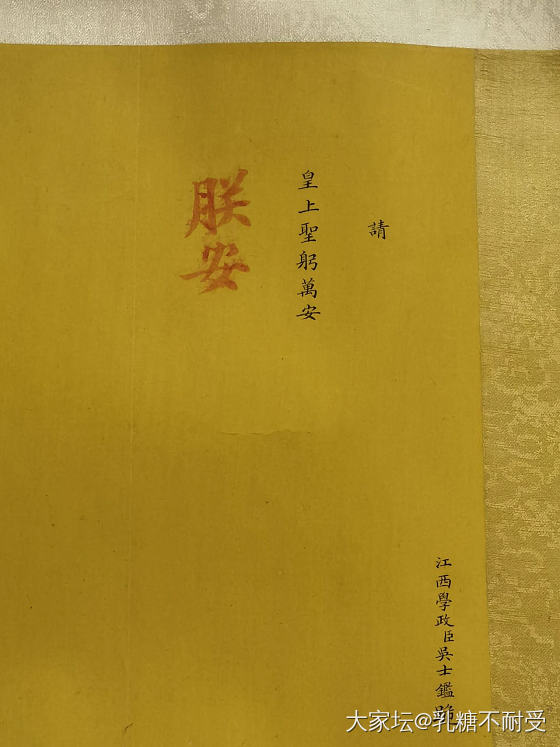 江西學政臣吳士鑑跪
請
皇上聖躬萬安
朕安
大家坛@乳糖不耐受